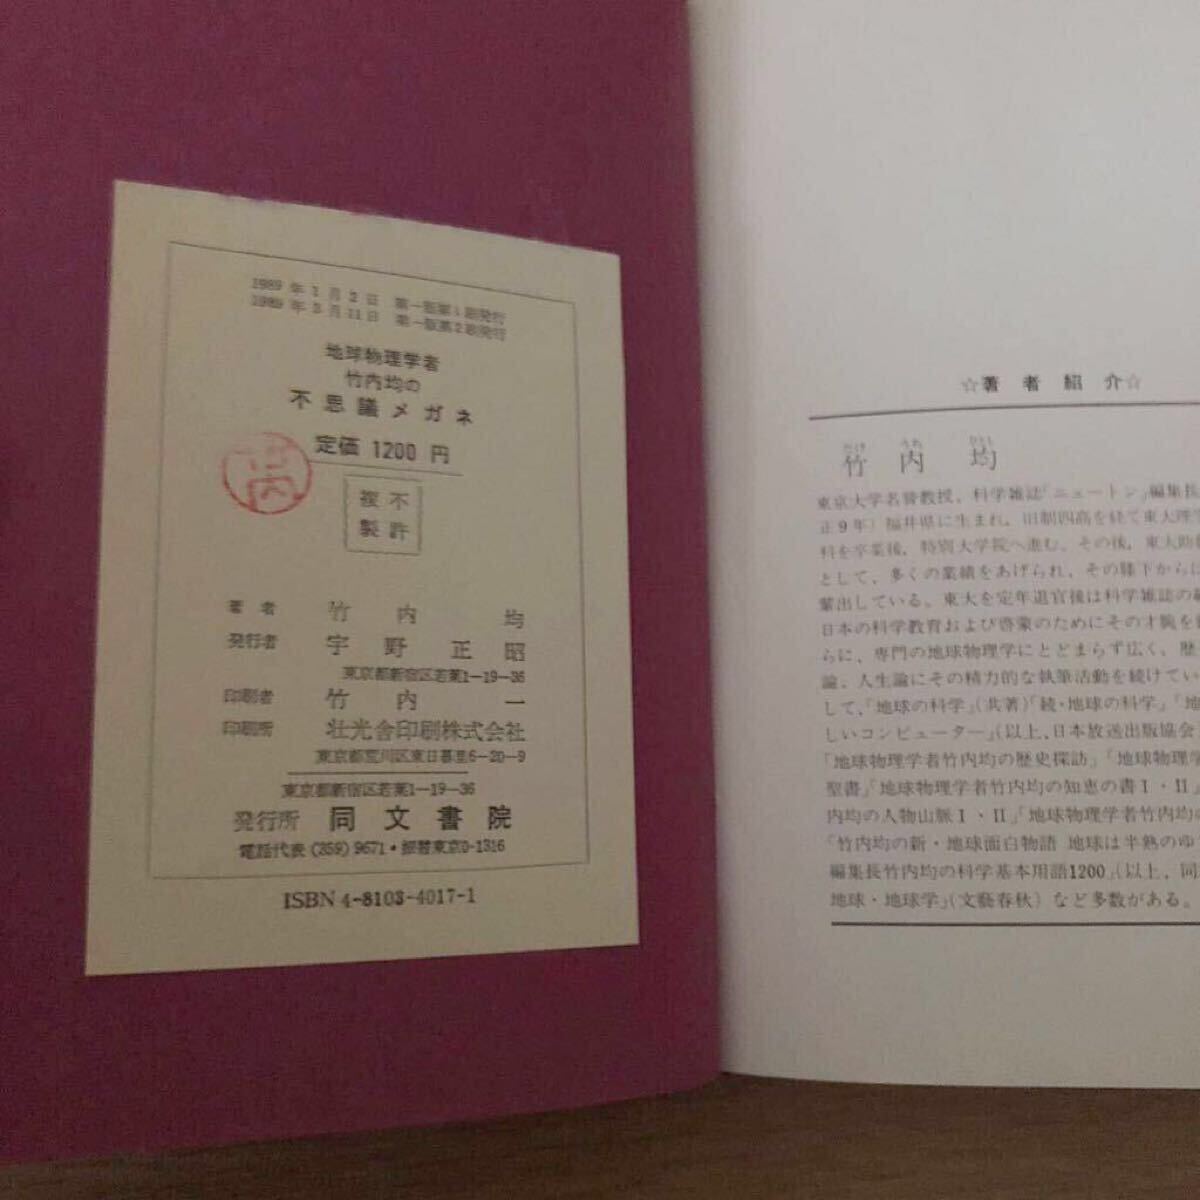 1989年1月2日 第一版第1刷発行
1989年3月11日 第一版第2刷発行
地球物理学者
竹内均の
不思議メガネ
定価 1200 円
不許
複製
著者 竹内 均
発行者 宇野正昭
東京都新宿区若葉1-19-36
印刷者 竹内 一
印刷所 壮光舎印刷株式会社
東京都荒川区東日暮里6-20-9
東京都新宿区若葉1-19-36
発行所 同文書院
電話代表 (359) 9671・振替東京0-1316
ISBN 4-8103-4017-1
☆著者紹介☆
たけ うち ひとし
竹内 均
東京大学名誉教授，科学雑誌「ニュートン」編集長
正9年）福井県に生まれ，旧制四高を経て東大理学
科を卒業後，特別大学院へ進む。その後，東大助
として，多くの業績をあげられ，その膝下からに
輩出している。東大を定年退官後は科学雑誌の
日本の科学教育および啓蒙のためにその才腕を
らに，専門の地球物理学にとどまらず広く，歴
論，人生論にその精力的な執筆活動を続けてい
して，「地球の科学」（共著）「続・地球の科学」「地
しいコンピューター」（以上，日本放送出版協会
「地球物理学者竹内均の歴史探訪」「地球物理学
聖書」「地球物理学者竹内均の知恵の書Ｉ・II」
内均の人物山脈Ｉ・II」「地球物理学者竹内均の
「竹内均の新・地球面白物語 地球は半熟のゆ
編集長竹内均の科学基本用語1200」（以上，同
地球・地球学」（文藝春秋）など多数がある。